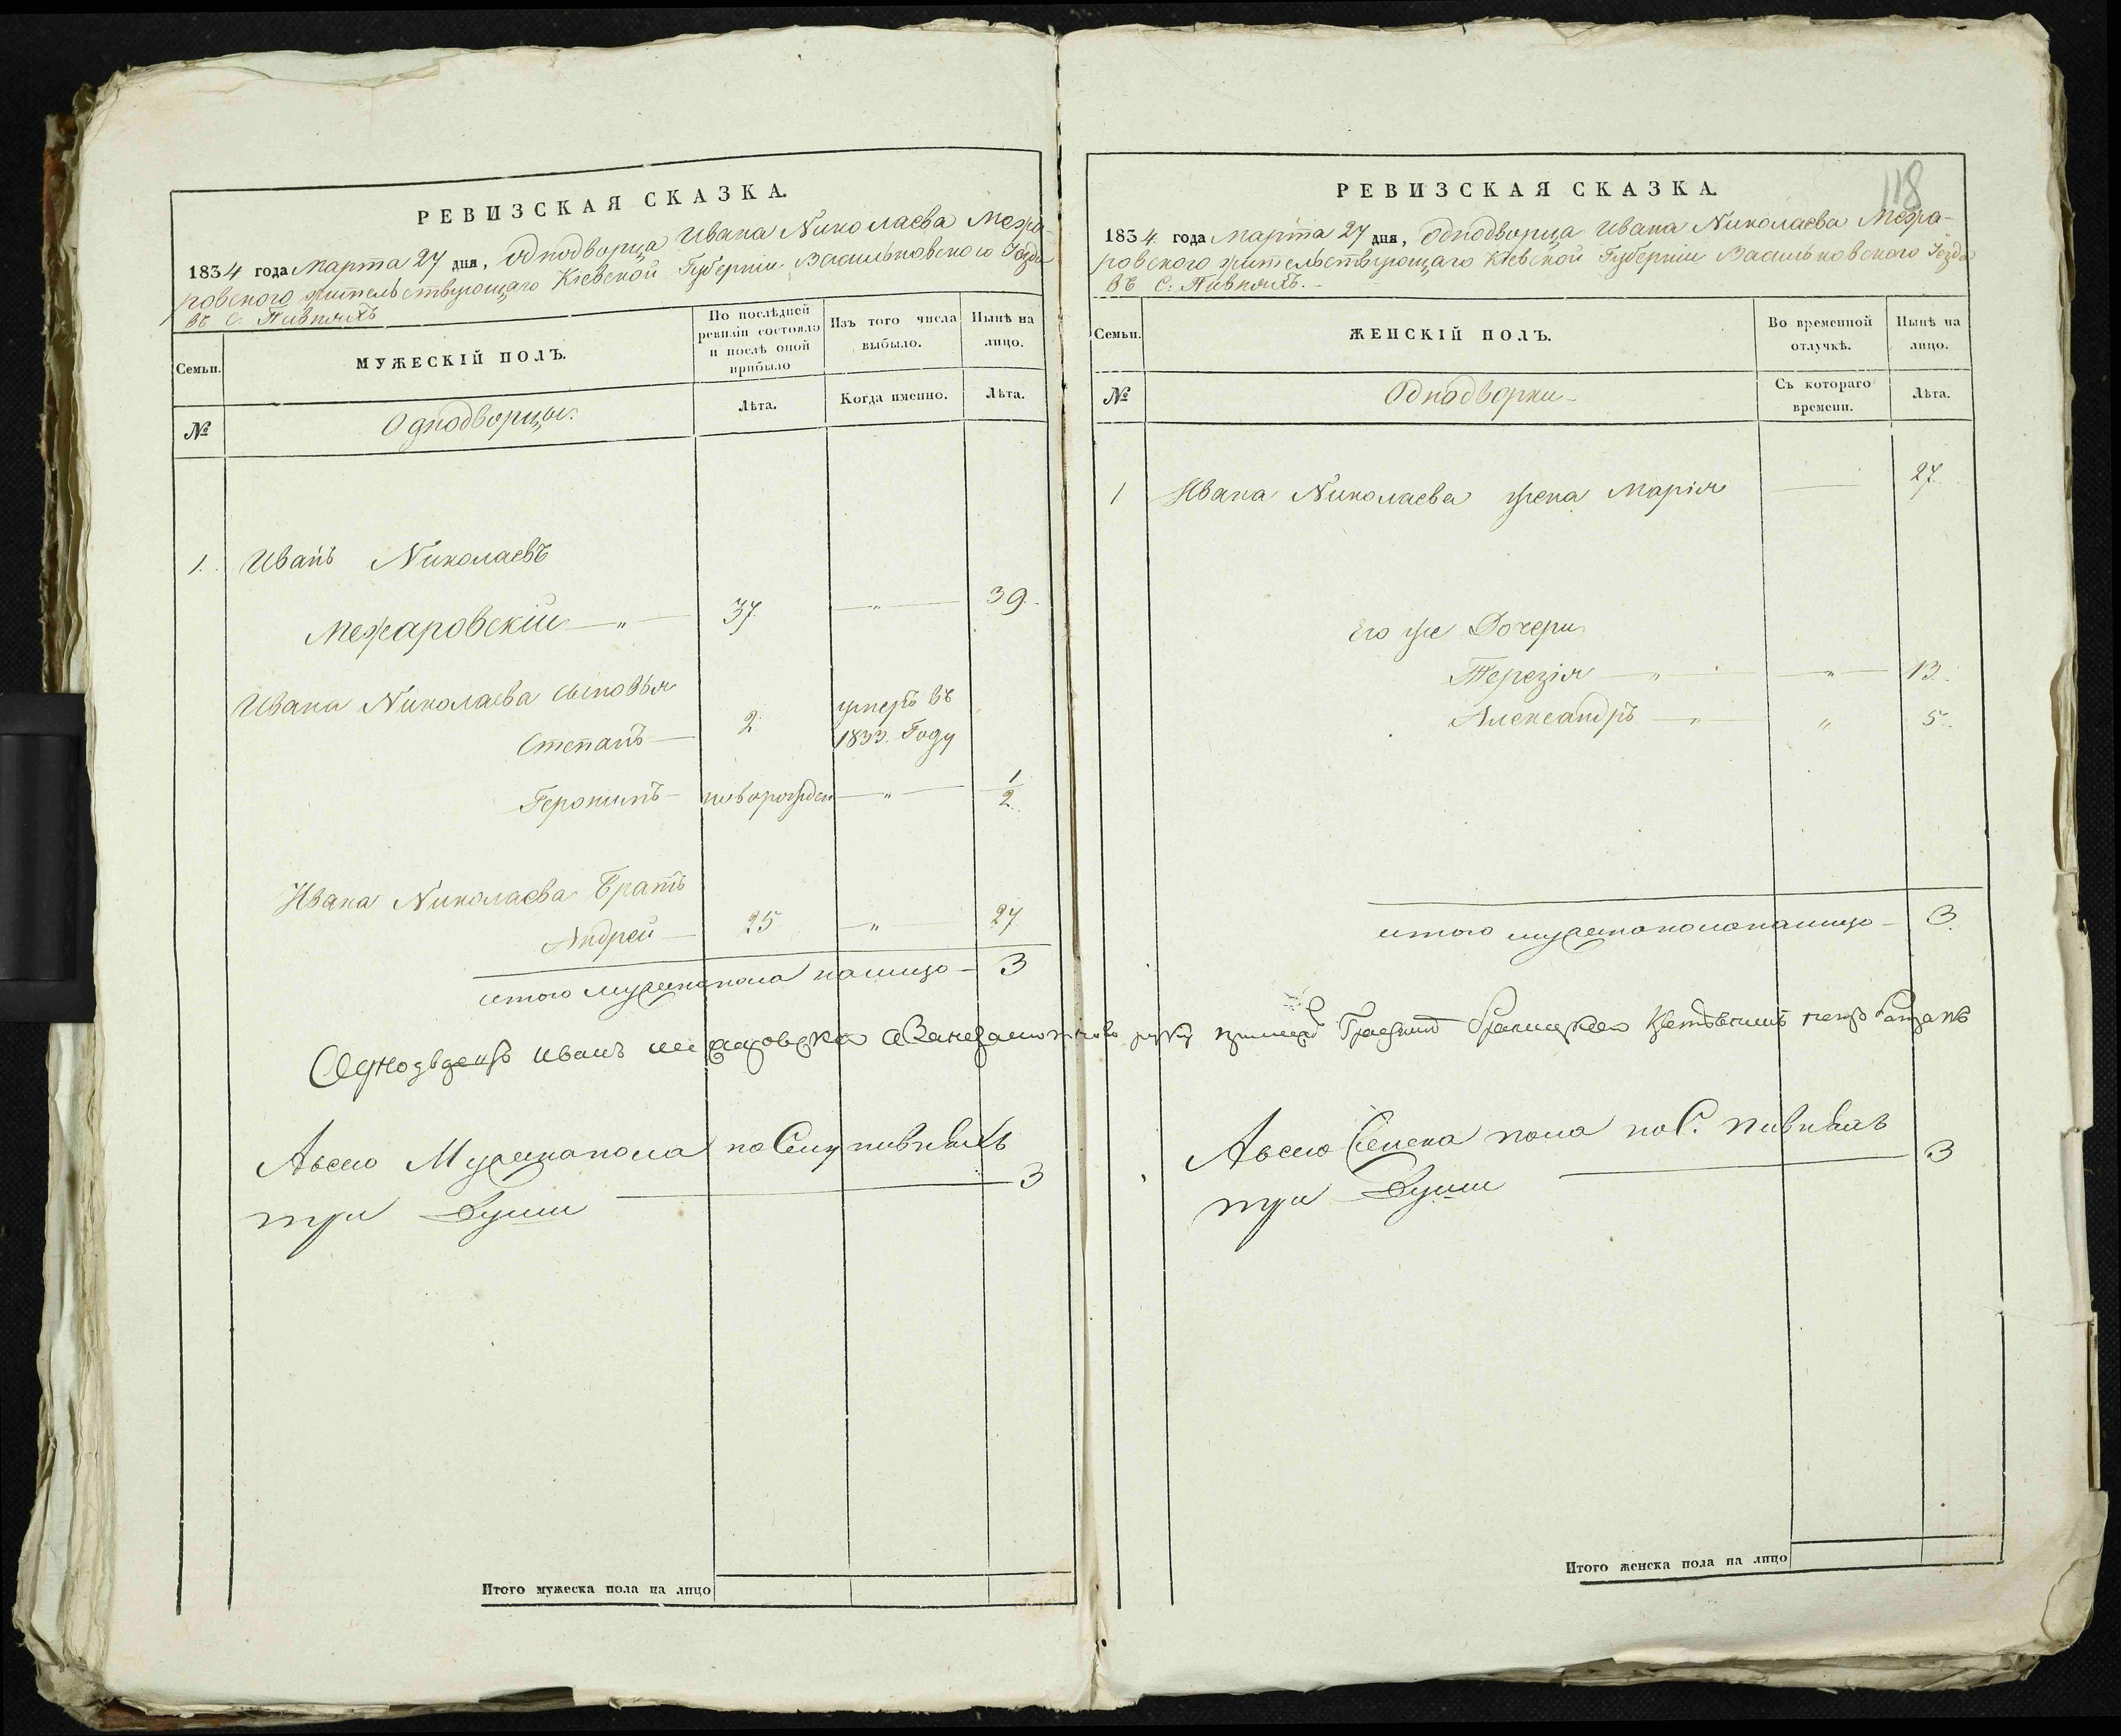 РЕВИЗСКАЯ СКАЗКА.
1834 года Марта 27 дня, Однодворца Ивана Николаева Межа-
ровского жительствующаго Кіевской Губерніи Васильковского Уѣзда
въ С. Пивняхъ
Семьи.
МУЖЕСКІЙ ПОЛЪ.
По послѣдней ревизіи состояло и послѣ оной прибыло
Изъ того числа выбыло.
Нынѣ на лицо.
№
Однодворцы.
Лѣта.
Когда именно.
Лѣта.
1. Иванъ Николаевъ
Межаровскій — „ — 37. — „ — 39.
Ивана Николаева сыновья
Степанъ — 2. умеръ въ 1833. Году
Геронимъ — новорожден — „ — 1/2
Ивана Николаева Братъ
Андрей — 25 — „ — 27
итого мужеска пола налицо — 3
Однодворецъ Иванъ руку
А всего Мужеска пола по Селу пивняхъ
три Души — 3
Итого мужеска пола на лицо
118
РЕВИЗСКАЯ СКАЗКА.
1834. года Марта 27 дня, Однодворца Ивана Николаева Межа-
ровского жительствующаго Кіевской Губерніи Васильковского Уѣзда
въ С: Пивняхъ. —
Семьи.
ЖЕНСКІЙ ПОЛЪ.
Во временной отлучкѣ.
Нынѣ на лицо.
№
Однодворки —
Съ котораго времени.
Лѣта.
1 Ивана Николаева жена Марія — 27.
Его же Дочери
Терезія — „ — „ — 13.
Александръ — „ — „ 5.
итого мужеска пола налицо — 3.
А всего Женска пола по С. пивняхъ
три Души — 3
Итого женска пола на лицо